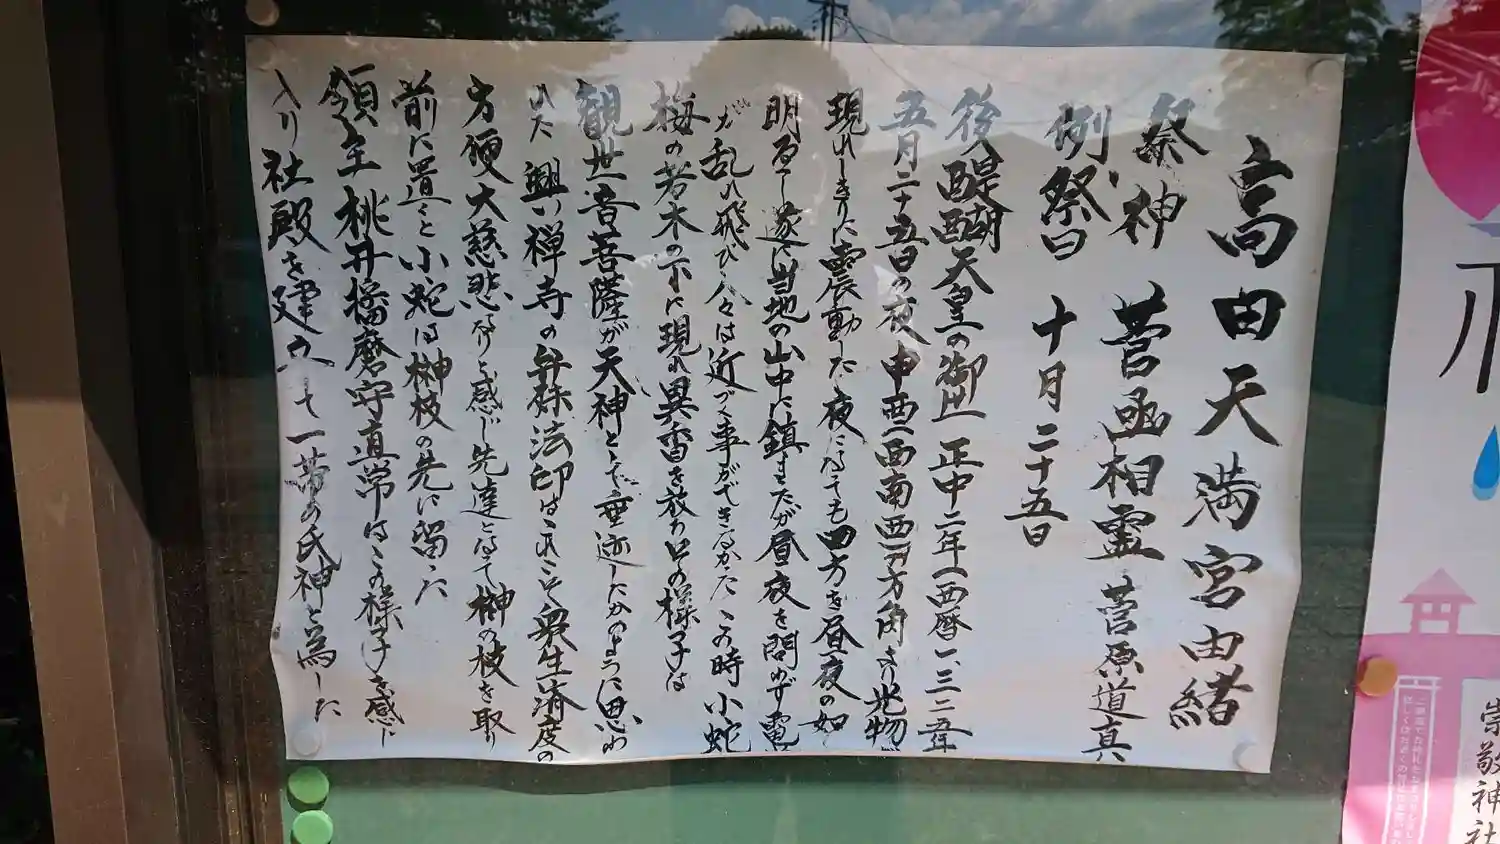 高田天満宮由緒
祭神 菅函相霊 菅原道真
例祭日 十月二十五日
後醍醐天皇の御世 正中二年(西暦一、三二五年
五月二十五日の夜 申酉(西南西)方角より光物が
現れしきりに震動した 夜になても四方を昼夜の如く
明るし 遂に当地の山中に鎮またが昼夜を問わず電
が乱れ飛び人々は近づく事ができなかた この時 小蛇
梅の若木の下に現れ異香を放ち口の様子は
観世音菩薩が天神として垂迹したかのように思わ
れた 興い禅寺の弁妹法印はこれこそ衆生済度の
方便大慈悲なりと感じ先達となて榊の枝を取り
前に置くと小蛇は榊枝の先に留った
領主 桃井播磨守直常はこの様子を感じ
入り社殿を建立して一帯の氏神と為した
崇敬神社